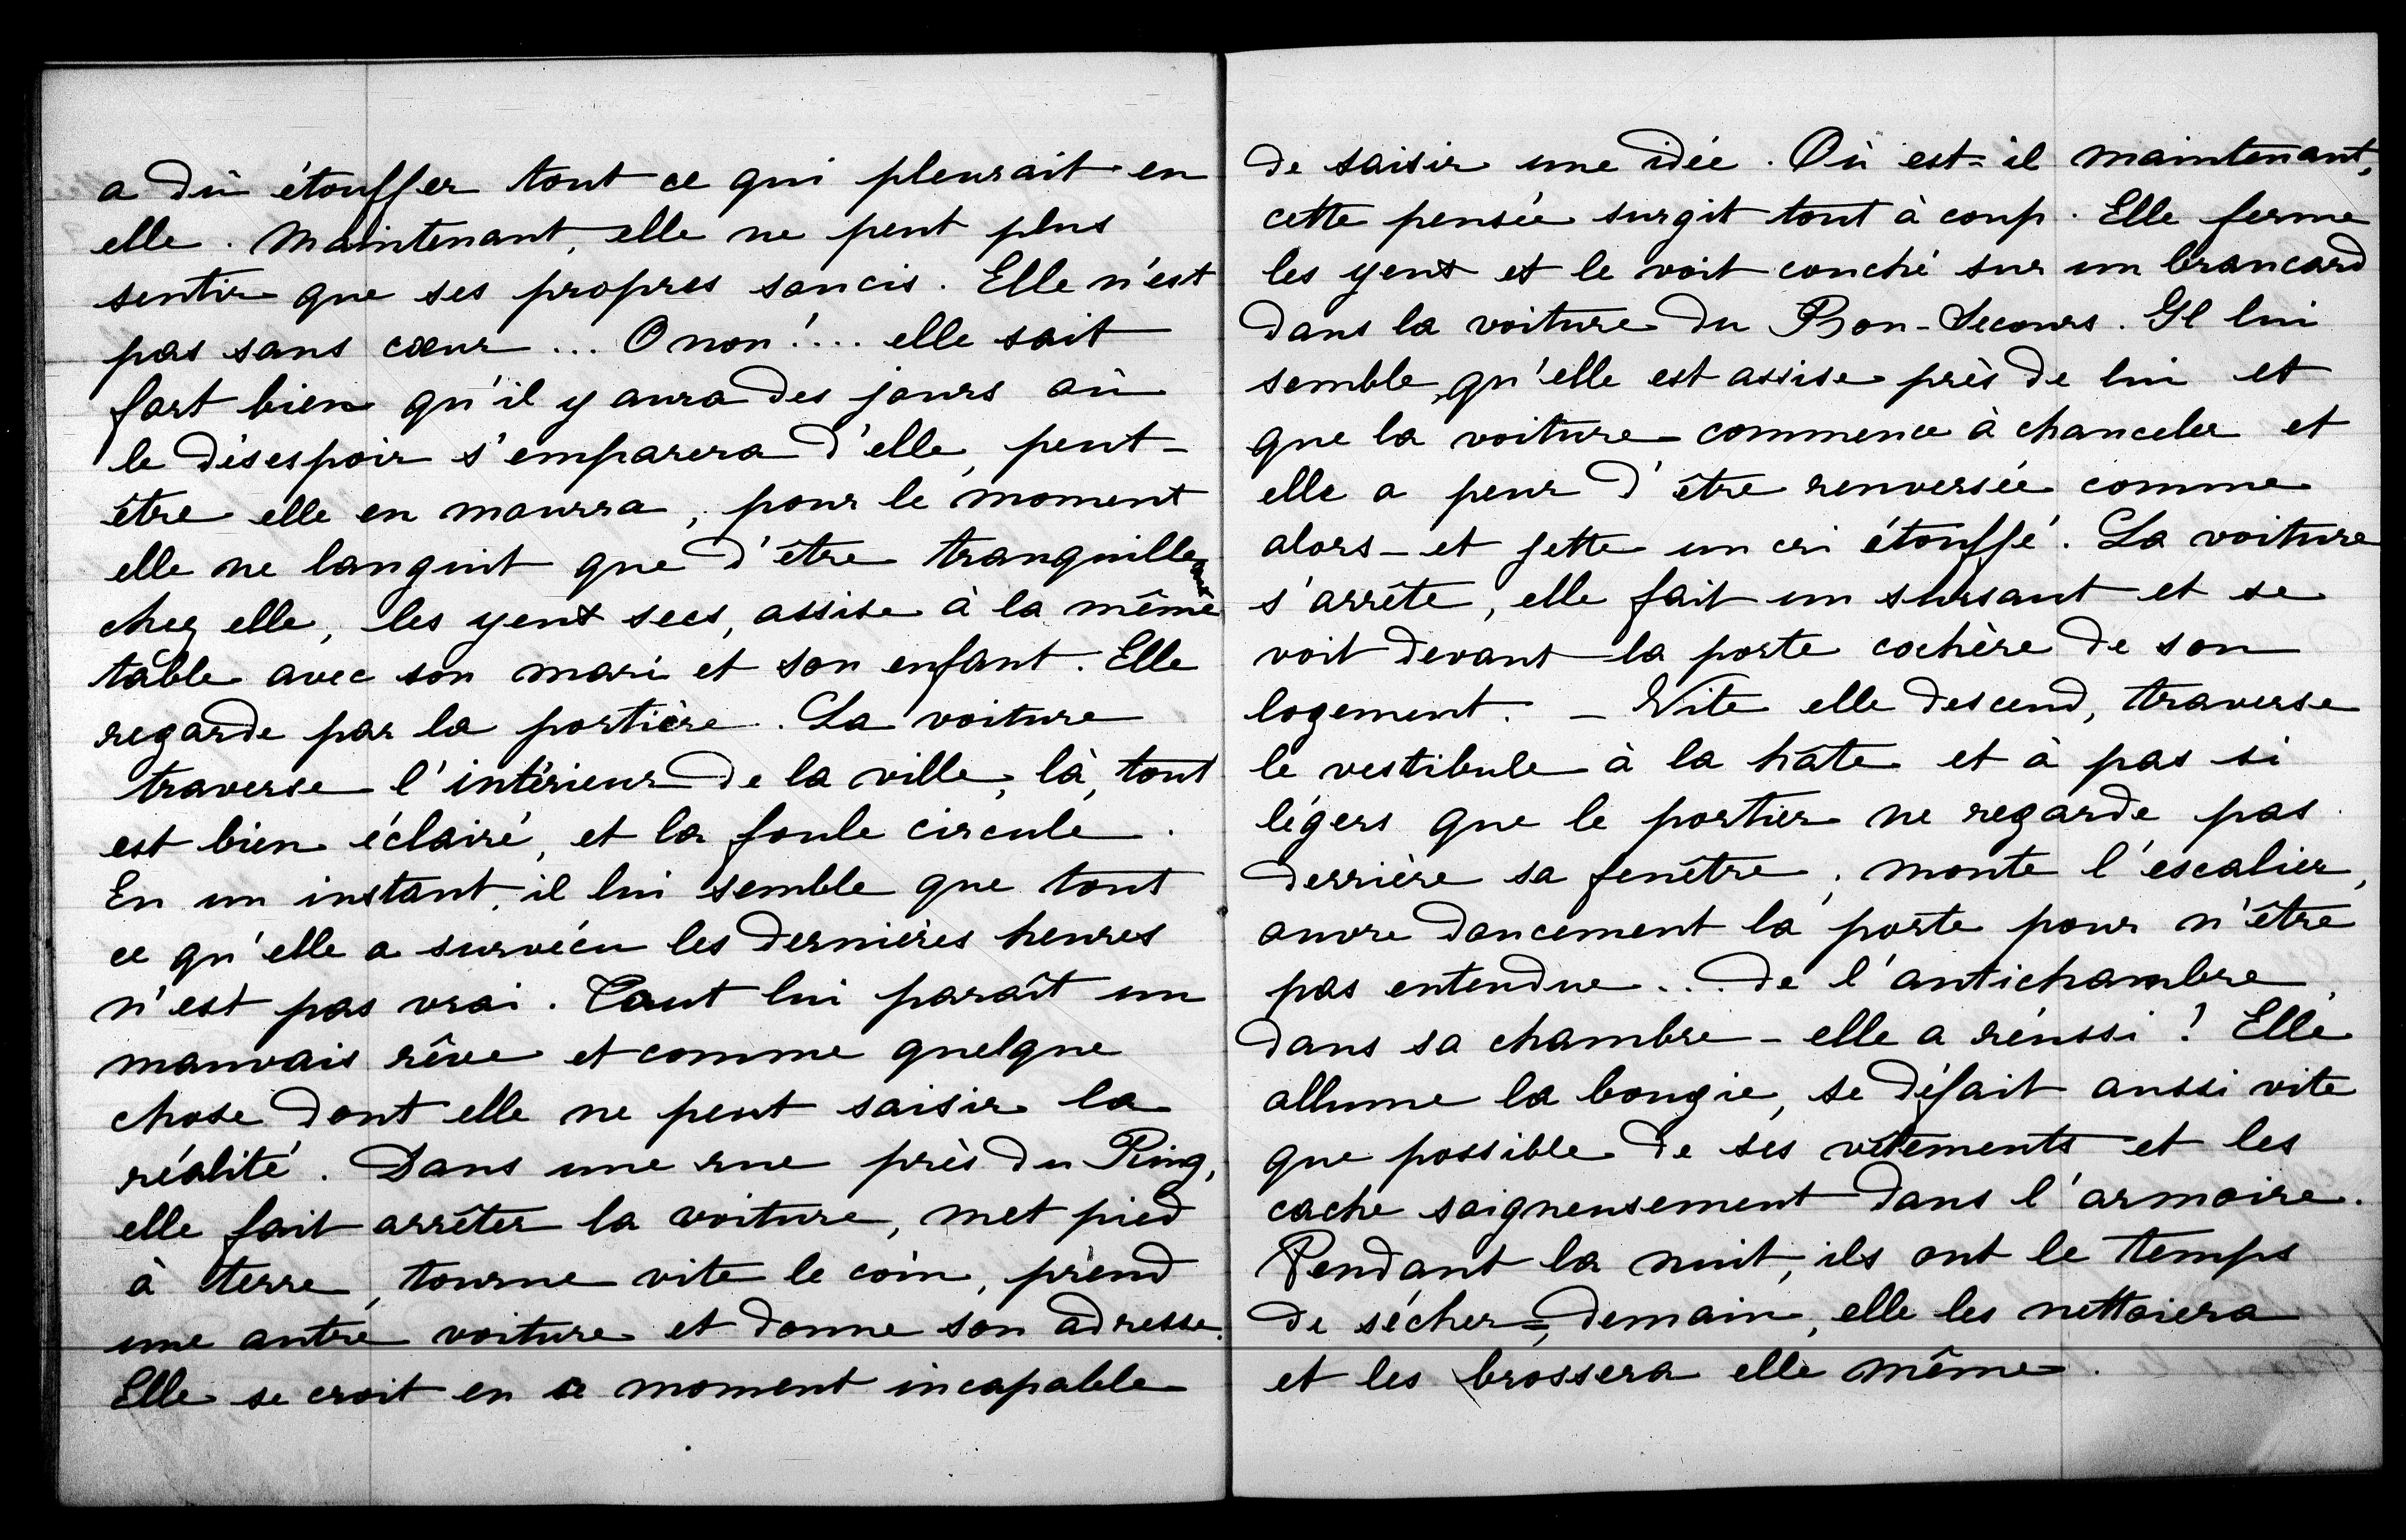 a dû étouffer tout ce qui pleurait en
elle. Maintenant, elle ne peut plus
sentir que ses propres soucis. Elle n'est
pas sans cœur... O non!... elle sait
fort bien qu'il y aura des jours où
le désespoir s'emparera d'elle, peut-
être elle en mourra, pour le moment
elle ne languit que d'être tranquille
chez elle, les yeux secs, assise à la même
table avec son mari et son enfant. Elle
regarde par la portière. La voiture
traverse l'intérieur de la ville, là, tout
est bien éclairé, et la foule circule.
En un instant, il lui semble que tout
ce qu'elle a survécu les dernières heures
n'est pas vrai. Tout lui paraît un
mauvais rêve et comme quelque
chose dont elle ne peut saisir la
réalité. Dans une rue près du Ring,
elle fait arrêter la voiture, met pied
à terre, tourne vite le coin, prend
une autre voiture et donne son adresse.
Elle se croit en ce moment incapable
de saisir une idée. Où est-il maintenant,
cette pensée surgit tout à coup. Elle ferme
les yeux et le voit couché sur un brancard
dans la voiture du Bon-Secours. Il lui
semble, qu'elle est assise près de lui et
que la voiture commence à chanceler et
elle a peur d'être renversée comme
alors - et jette un cri étouffé. La voiture
s'arrête, elle fait un sursaut et se
voit devant la porte cochère de son
logement. - Vite elle descend, traverse
le vestibule à la hâte et à pas si
légers que le portier ne regarde pas
derrière sa fenêtre; monte l'escalier,
ouvre doucement la porte pour n'être
pas entendue... de l'antichambre
dans sa chambre - elle a réussi! Elle
allume la bougie, se défait aussi vite
que possible de ses vêtements et les
cache soigneusement dans l'armoire.
Pendant la nuit, ils ont le temps
de sécher=, demain, elle les nettoiera
et les brossera elle même.